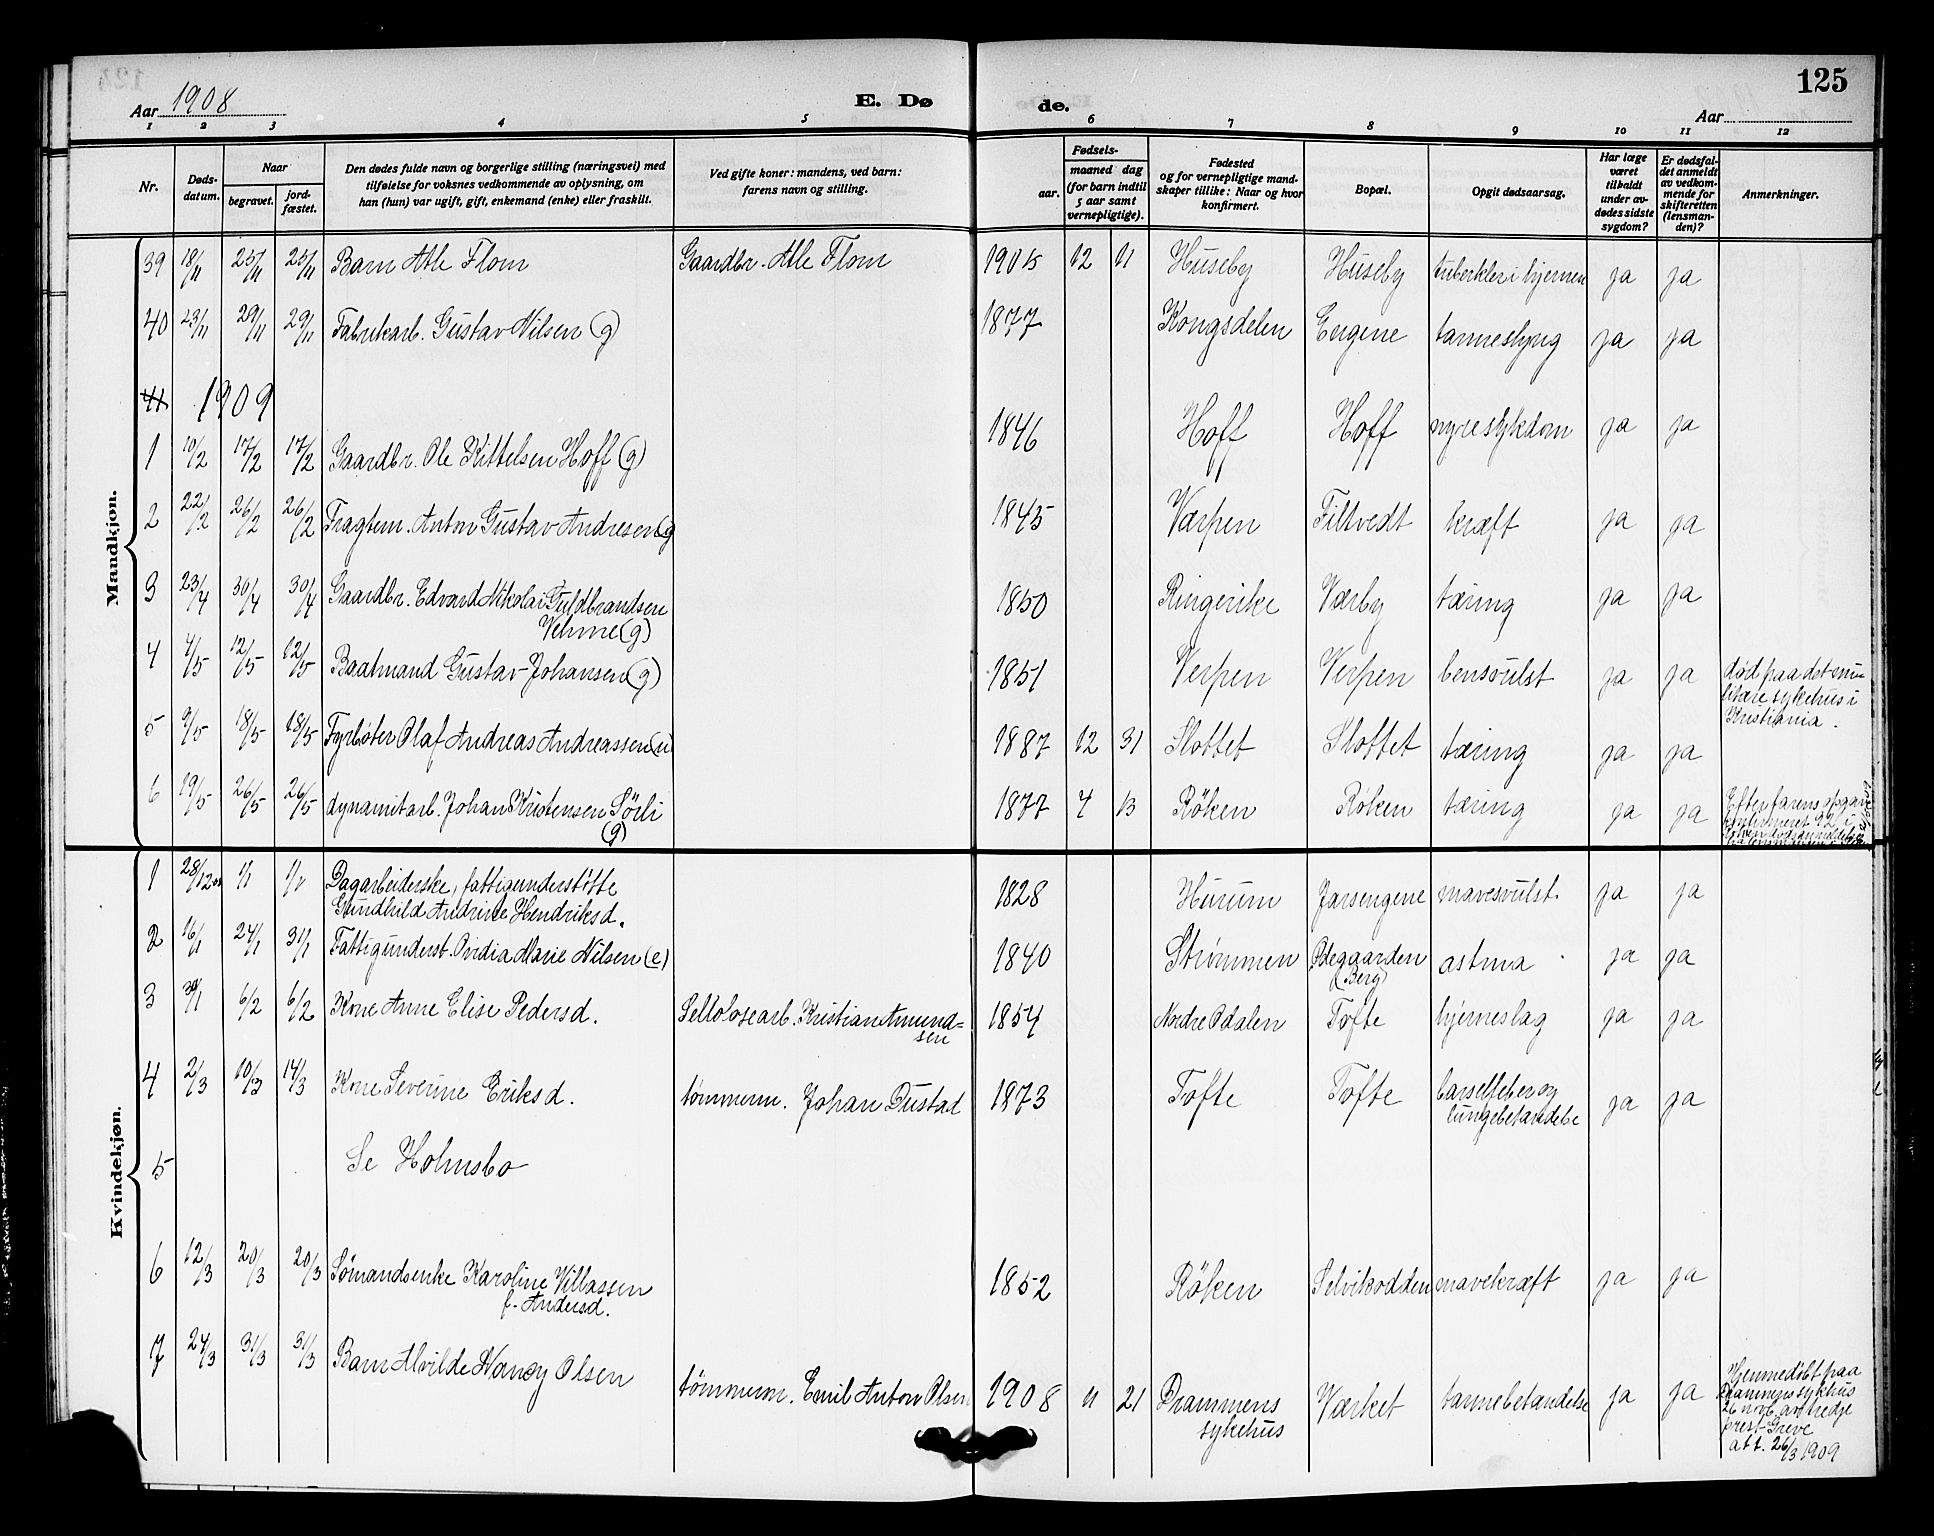 Aar 1908
E. Dø
de.
125
Aar
1 2 3 4 5 6 7 8 9 10 11 12
Nr.
Døds-
datum.
Naar
begravet.
jord-
fæstet.
Den dødes fulde navn og borgerlige stilling (næringsvei) med
tilføielse for voksnes vedkommende av oplysning, om
han (hun) var ugift, gift, enkemand (enke) eller fraskilt.
Ved gifte koner: mandens, ved barn:
farens navn og stilling.
Fødsels-
aar.
maaned dag
(for barn indtil
5 aar samt
vernepligtige).
Fødested
og for vernepligtige mand-
skaper tillike: Naar og hvor
konfirmert.
Bopæl.
Opgit dødsaarsag.
Har læge
været
tilkaldt
under av-
dødes sidste
sygdom?
Er dødsfal-
det anmeldt
av vedkom-
mende for
skifteretten
(lensman-
den)?
Anmerkninger.
Mandkjøn.
39 18/11 25/11 25/11 Barn Atle Flom Gaardbr. Atle Flom 1905 12 11 Huseby Huseby tuberkler i hjernen ja ja
40 23/11 29/11 29/11 Fabrikarb. Gustav Nilsen (g) 1877 Kongsdelen Engene ja ja
41 1909
1 10/2 17/2 17/2 Gaardbr. Ole Kittelsen Hoff (g) 1846 Hoff Hoff nyresykdom ja ja
2 22/2 26/2 26/2 Fragtem. Anton Gustav Andresen (g 1845 Værpen Filtvedt kræft ja ja
3 23/4 30/4 30/4 Gaardbr. Edvard Nikolai Guldbrandsen
Vehme (g) 1850 Ringerike Værby tæring ja ja
4 4/5 12/5 12/5 Baatmand Gustav Johansen (g) 1851 Verpen Verpen bensvulst ja ja
5 9/5 18/5 18/5 Fyrbøter Olaf Andreas Andreassen (u 1887 12 31 Slottet Slottet tæring ja ja
død paa det mi-
litære sykehus i
Kristiania.
6 19/5 26/5 26/5 dynamitarb. Johan Kristensen Sörli
(g) 1877 4 13 Röken Röken tæring ja ja
Efter farens opgav
konfirmeret 92 i
Kvindekjøn.
1 28/12 08 1/1 1/1 Dagarbeiderske, fattigunderstøtte
Gundhild Andrine Hendriksd. 1828 Hurum Jarsengene mavesvulst. ja ja
2 16/1 24/1 31/1 Fattigunderst. Ovidia Marie Nilsen (e) 1840 Strömmen Ødegaarden
(Berg) astma ja ja
3 30/1 6/2 6/2 Kone Anne Elise Pedersd. Sellolosearb. Kristian Amund-
sen 1854 Nordre Odalen Tofte hjerneslag ja ja
4 2/3 10/3 14/3 Kone Severine Eriksd. tømmerm. Johan Dustad 1873 Tofte Tofte barselfeber og
lungebetændelse ja ja
5 Se Holmsbo
6 12/3 20/3 20/3 Sømandsenke Karoline Villassen
f. Andersd. 1852 Röken Selvikodden mavekræft ja ja
7 24/3 31/3 31/3 Barn Alvilde Nancy Olsen tømmerm. Emil Anton Olsen 1908 11 21 Drammens
sykehus Værket ja ja
Hjemmedöbt paa
Drammens sykhus
26 nvb. av tredje
prest Greve
att. 26/3 1909